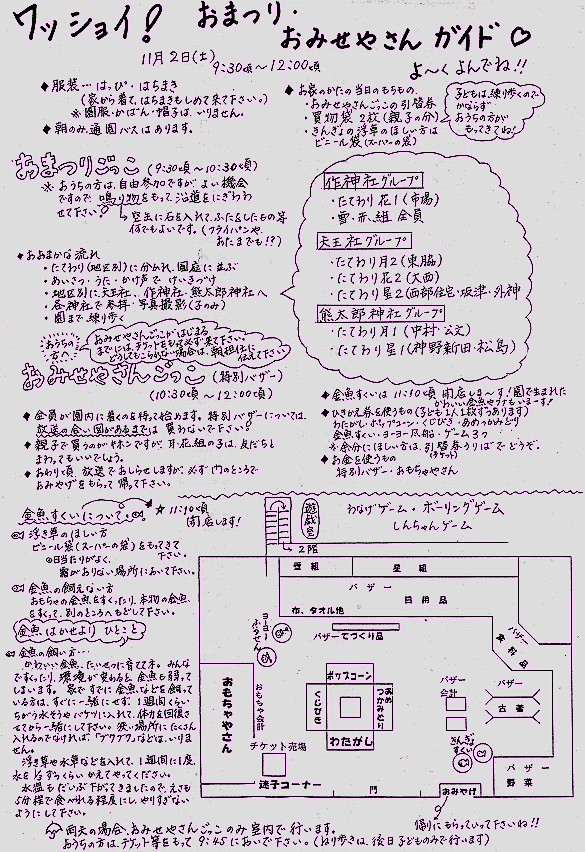 ワッショイ! おまつり・
おみせやさん ガイド♡
11月2日(土)
9:30頃～12:00頃
よ～く よんでね!!
◆服装…はっぴ・はちまき
(家から着て、はちまきもしめて来て下さい。)
※園服・かばん・帽子は、いりません。
◆朝のみ、通園バスはあります。
◆お家のかたの当日のもちもの.
・おみせやさんごっこの引替券
・買物袋 2枚(親子の分)
・きんぎょの浮草のほしい方は
ビニール袋(スーパーの袋)
子どもは、練り歩くので
かならず
おうちの方が
もってきてね!
おまつりごっこ (9:30頃～10:30頃)
※おうちの方は、自由参加ですが、よい機会
ですので、鳴り物をもって、沿道をにぎわ
せて下さい!
空缶に石を入れて、ふたをしたもの等
何でもよいです。(フライパンや、
おたまでも!?)
◆おおまかな流れ
・たてわり(地区別)に分かれ、園庭に並ぶ
・あいさつ・うた・かけ声で けいきづけ
・地区別に、天王社、作神社・熊太郎神社へ
・各神社で参拝・写真撮影(子のみ)
・園まで練り歩く
作神社グループ
・たてわり花1(市場)
・雪.赤.組 全員
天王社グループ
・たてわり月2(東脇)
・たてわり花2(大西)
・たてわり星2(西部住宅・坂津・外神
熊太郎神社グループ
・たてわり月1(中村・公文)
・たてわり星1(神野新田・松島)
おうちの
方へ
おみせやさんごっこがはじまる
までには、チケットをもって必ず来て下さい。
どうしてもこられない場合は、朝、担任に
伝えて下さい
おみせやさんごっこ (特別バザー)
(10:30頃～12:00頃)
◆全員が園内に着くのを待って始めます。特別バザーについては、
放送の合い図があるまでは 買わないで下さい?
◆親子で買うのがキホンですが、月.花.組の子は、友だちと
まわってもいいでしょう。
◆おわり頃、放送でおしらせしますが、必ず門のところで
おみやげをもらって帰って下さい。
◆金魚すくいは 11:10頃 閉店しま～す!園で生まれた
かわいい金魚やフナもいま～す!
◆ひきかえ券を使うもの(子ども1人1枚ずつあります)
わたがし・ポップコーン・くじびき・あめつかみどり
金魚すくい・ヨーヨー風船・ゲーム3つ
※余分にほしい方は、引替券うりばでどうぞ.
(チケット)
◆お金を使うもの
特別バザー・おもちゃやさん
金魚すくいについて
☆11:10頃
閉店します!
浮き草のほしい方
ビニール袋(スーパーの袋)をもってきて
下さい。
◎日当たりがよく、
霜がおりない場所において下さい。
金魚の飼えない方
おもちゃの金魚をすくったり、本物の金魚
をすくって、別のところへもどして下さい。
金魚はかせより ひとこと
金魚の飼い方…
かわいい金魚、たいせつに育てて下さい。みんな
ですくったり、環境が変わると、金魚も弱って
しまいます。家ですでに金魚などを飼って
いる方は、すぐに一緒にせず、1週間くらい
ちがう水そうやバケツに入れて、体力を回復さ
せてから一緒にして下さい。狭い場所にたくさん
入れるのでなければ、「ブクブク」などは、いりま
せん。
浮き草や水草などを入れて、1週間に1度、
水を⅓ずつくらい かえてやってください。
水温もだいぶ下がってきましたので、えさも
5分程で食べれる程度にし、やりすぎない
ようにして下さい。
遊戯室
わなげゲーム・ボーリングゲーム
しんちゃんゲーム
2階
雪組
星組
バザー
日用品
布、タオル他
バザーてづくり品
ヨーヨー
ふうせん
バザー
食料品
おもちゃやさん
おもちゃ会計
ポップコーン
くじびき
あめ
つかみどり
わたがし
バザー
会計
バザー
古着
チケット売場
きんぎょ
すくい
迷子コーナー
門
おみやげ
バザー
野菜
帰りにもらっていって下さいね!!
雨天の場合、おみせやさんごっこのみ 室内で行います。
おうちの方は、チケット等をもって 9:45においで下さい。(ねり歩きは、後日子どものみで行います.)